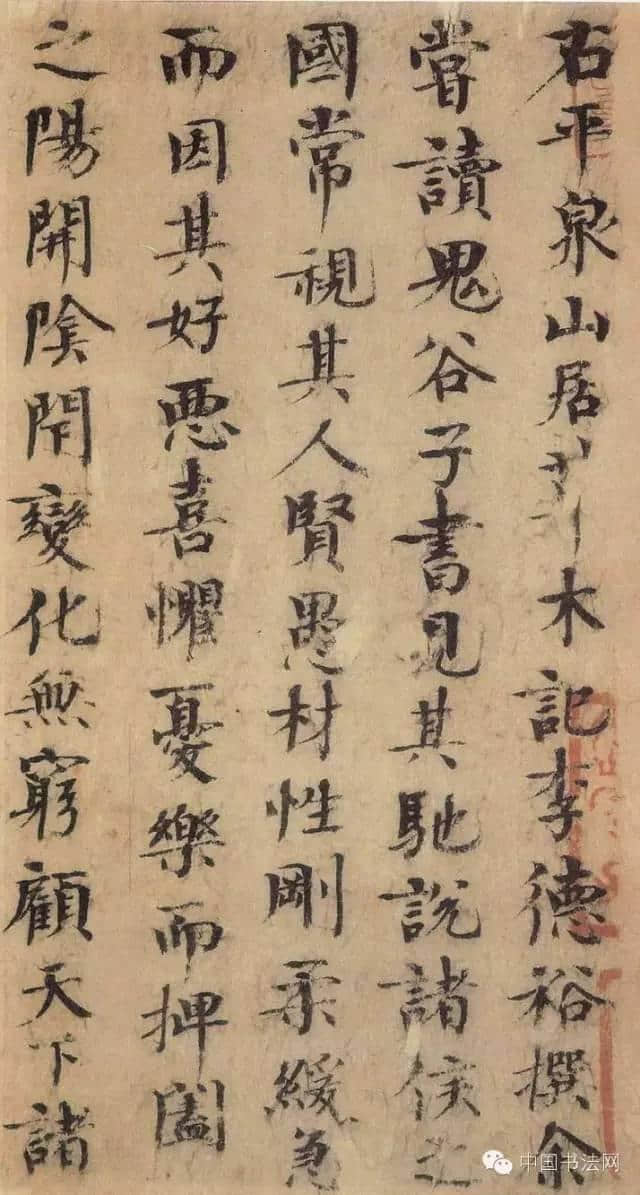 右平泉山居草木記李德裕撰余
嘗讀鬼谷子書見其馳說諸侯之
國常視其人賢愚材性剛柔緩急
而因其好惡喜懼憂樂而捭闔
之陽開陰閇變化無窮顧天下諸
中国书法网